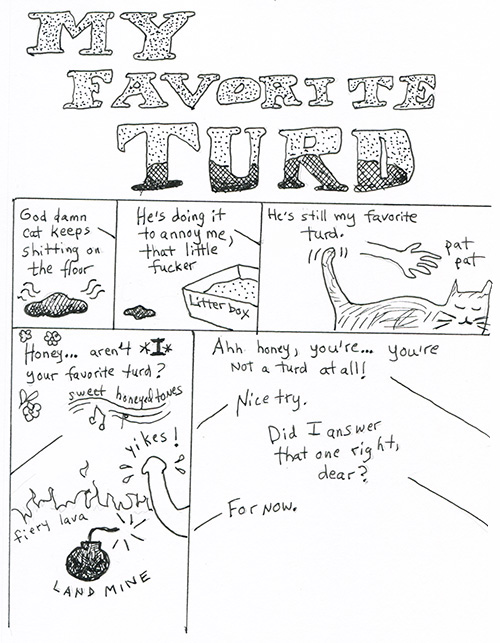 MY
FAVORITE
TURD
God damn
cat keeps
shitting on
the floor
He's doing it
to annoy me,
that little
fucker
Litter box
He's still my favorite
turd.
pat
pat
Honey... aren't *I*
your favorite turd?
sweet honeyed tones
yikes!
fiery lava
LAND MINE
Ahh honey, you're... you're
not a turd at all!
Nice try.
Did I answer
that one right,
dear?
For now.